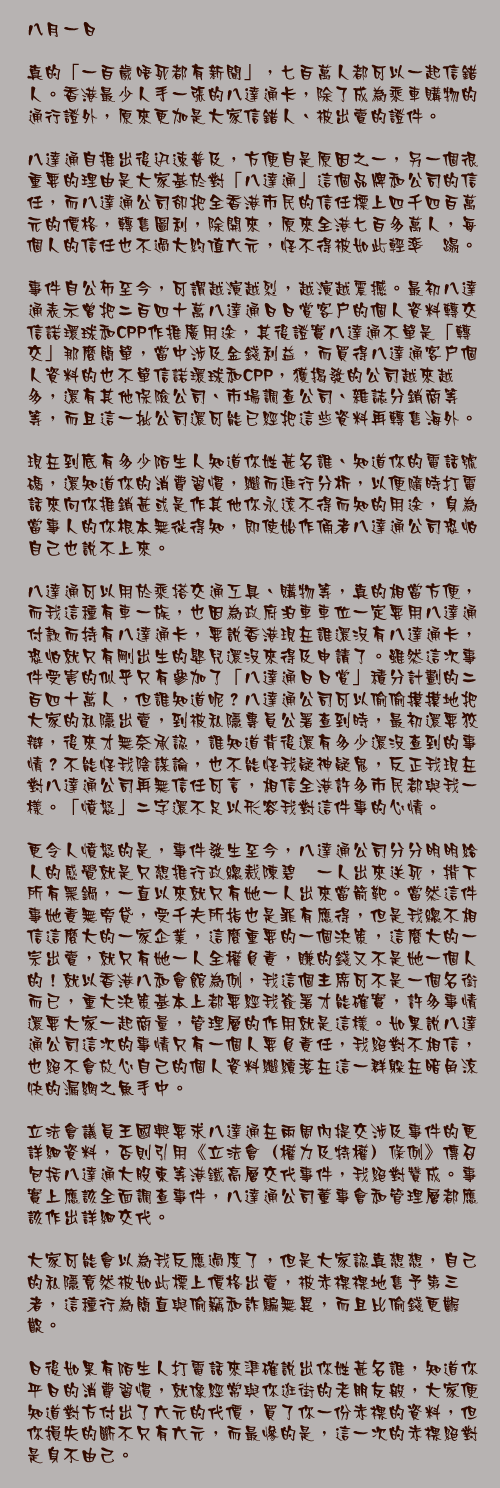 八月一日
真的「一百歲唔死都有新聞」，七百萬人都可以一起信錯
人。香港最少人手一張的八達通卡，除了成為乘車購物的
通行證外，原來更加是大家信錯人、被出賣的證件。
八達通自推出後迅速普及，方便自是原因之一，另一個很
重要的理由是大家基於對「八達通」這個品牌和公司的信
任，而八達通公司卻把全香港市民的信任標上四千四百萬
元的價格，轉售圖利，除開來，原來全港七百多萬人，每
個人的信任也不過大約值六元，怪不得被如此輕率　蹋。
事件自公布至今，可謂越演越烈，越演越震撼。最初八達
通表示曾把二百四十萬八達通日日賞客户的個人資料轉交
信諾環球和CPP作推廣用途，其後證實八達通不單是「轉
交」那麼簡單，當中涉及金錢利益，而買得八達通客户個
人資料的也不單信諾環球和CPP，獲揭發的公司越來越
多，還有其他保險公司、市場調查公司、雜誌分銷商等
等，而且這一批公司還可能已經把這些資料再轉售海外。
現在到底有多少陌生人知道你姓甚名誰、知道你的電話號
碼，還知道你的消費習慣，繼而進行分析，以便隨時打電
話來向你推銷甚或是作其他你永遠不得而知的用途，身為
當事人的你根本無從得知，即使始作俑者八達通公司恐怕
自己也說不上來。
八達通可以用於乘搭交通工具、購物等，真的相當方便，
而我這種有車一族，也因為政府泊車車位一定要用八達通
付款而持有八達通卡，要說香港現在誰還沒有八達通卡，
恐怕就只有剛出生的嬰兒還沒來得及申請了。雖然這次事
件受害的似乎只有參加了「八達通日日賞」積分計劃的二
百四十萬人，但誰知道呢？八達通公司可以偷偷摸摸地把
大家的私隱出賣，到被私隱專員公署查到時，最初還要狡
辯，後來才無奈承認，誰知道背後還有多少還沒查到的事
情？不能怪我陰謀論，也不能怪我疑神疑鬼，反正我現在
對八達通公司再無信任可言，相信全港許多市民都與我一
樣。「憤怒」二字還不足以形容我對這件事的心情。
更令人憤怒的是，事件發生至今，八達通公司分分明明給
人的感覺就是只想推行政總裁陳碧　一人出來送死，揹下
所有黑鍋，一直以來就只有她一人出來當箭靶。當然這件
事她責無旁貸，受千夫所指也是罪有應得，但是我總不相
信這麼大的一家企業，這麼重要的一個決策，這麼大的一
宗出賣，就只有她一人全權負責，賺的錢又不是她一個人
的！就以香港八和會館為例，我這個主席可不是一個名銜
而已，重大決策基本上都要經我簽署才能確實，許多事情
還要大家一起商量，管理層的作用就是這樣。如果說八達
通公司這次的事情只有一個人要負責任，我絕對不相信，
也絕不會放心自己的個人資料繼續落在這一群躲在暗角涼
快的漏網之魚手中。
立法會議員王國興要求八達通在兩周內提交涉及事件的更
詳細資料，否則引用《立法會（權力及特權）條例》傳召
包括八達通大股東等港鐵高層交代事件，我絕對贊成。事
實上應該全面調查事件，八達通公司董事會和管理層都應
該作出詳細交代。
大家可能會以為我反應過度了，但是大家認真想想，自己
的私隱竟然被如此標上價格出賣，被赤裸裸地售予第三
者，這種行為簡直與偷竊和詐騙無異，而且比偷錢更齷
齪。
日後如果有陌生人打電話來準確說出你姓甚名誰，知道你
平日的消費習慣，就像經常與你逛街的老朋友般，大家便
知道對方付出了六元的代價，買了你一份赤裸的資料，但
你損失的斷不只有六元，而最慘的是，這一次的赤裸絕對
是身不由己。